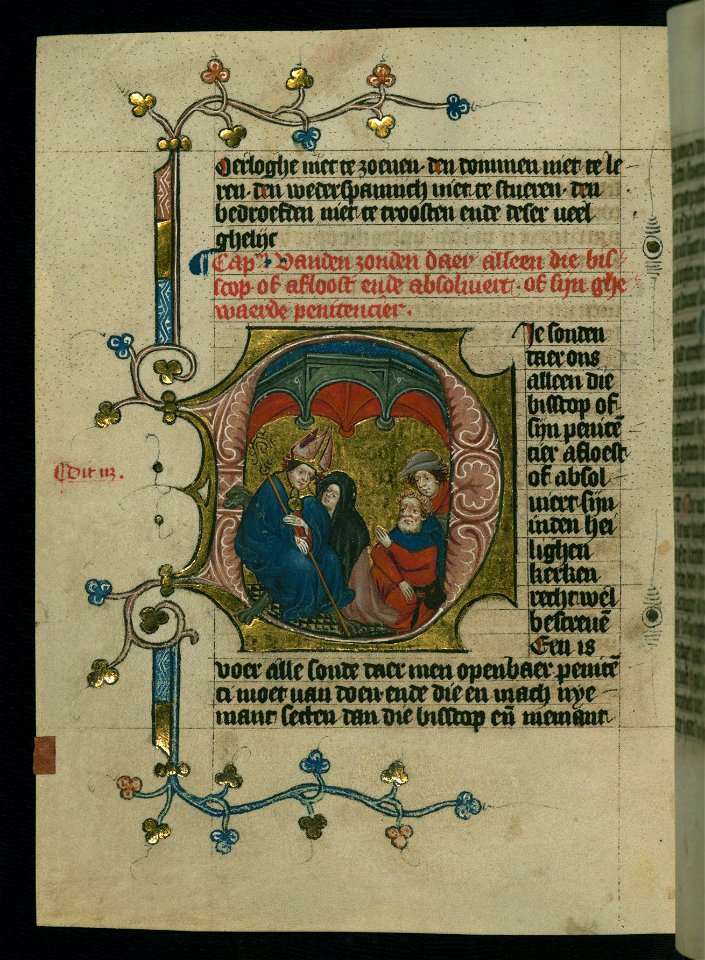 Oerloghe niet te zoenen den dommen niet te le
ren den wederspannich niet te stueren den
bedroefden niet te troosten ende deser veel
ghelijc
Capm Vanden zonden daer alleen die bis
scop of afloost ende absolviert of sijn ghe
waerde penitencier.
Die sonden
daer ons
alleen die
bisscop of
sijn penitē
cier afloest
of absol
viert sijn
inden hei
lighen
kerken
recht wel
bescreuē
Een is
voer alle sonde daer men openbaer penitē
ci moet van doen ende die en mach nye
mant setten dan die bisscop eñ niemant